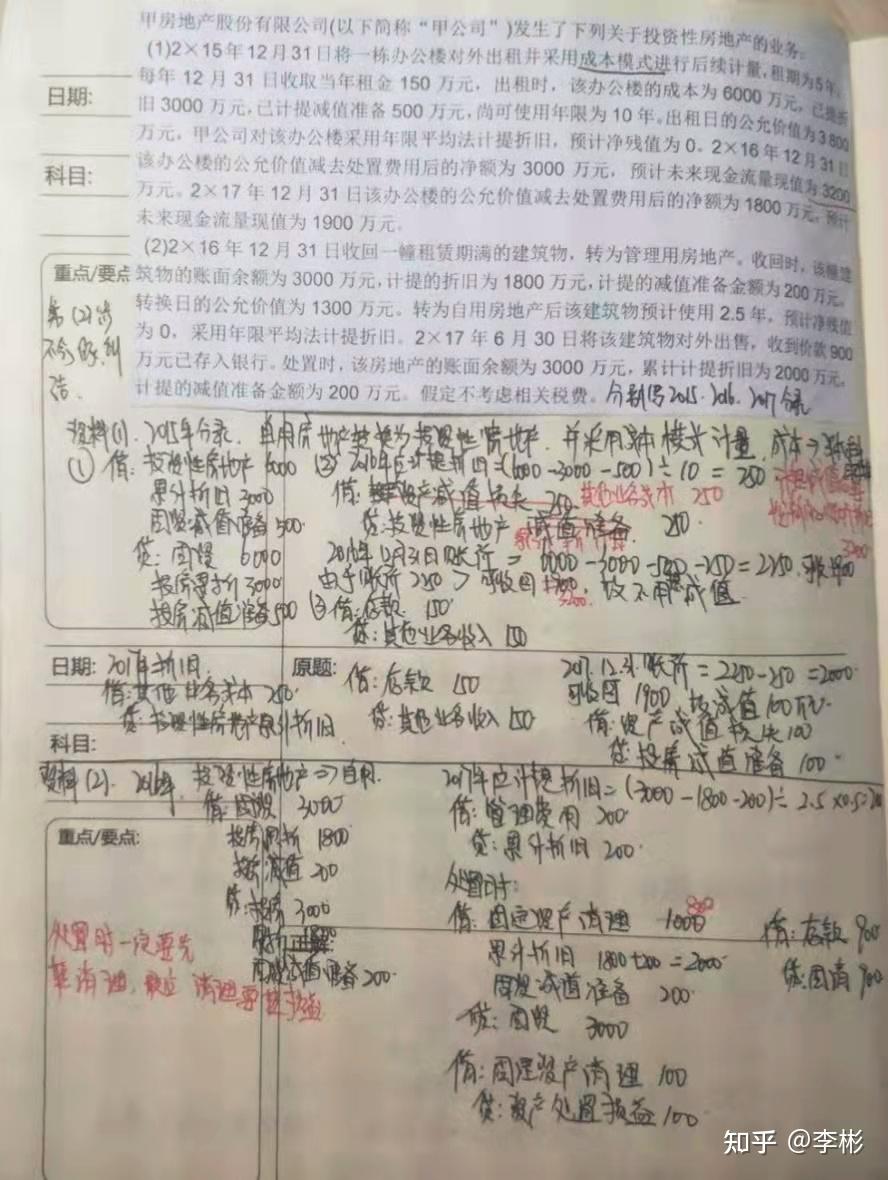 甲房地产股份有限公司(以下简称“甲公司”)发生了下列关于投资性房地产的业务:
(1)2×15年12月31日将一栋办公楼对外出租并采用成本模式进行后续计量,租期为5年,
每年12月31日收取当年租金150万元,出租时,该办公楼的成本为6000万元,已提折
旧3000万元,已计提减值准备500万元,尚可使用年限为10年。出租日的公允价值为3800
万元,甲公司对该办公楼采用年限平均法计提折旧,预计净残值为0。2×16年12月31日
该办公楼的公允价值减去处置费用后的净额为3000万元,预计未来现金流量现值为3200
万元。2×17年12月31日该办公楼的公允价值减去处置费用后的净额为1800万元,预计
未来现金流量现值为1900万元。
(2)2×16年12月31日收回一幢租赁期满的建筑物,转为管理用房地产。收回时,该幢建
筑物的账面余额为3000万元,计提的折旧为1800万元,计提的减值准备金额为200万元。
转换日的公允价值为1300万元。转为自用房地产后该建筑物预计使用2.5年,预计净残值
为0,采用年限平均法计提折旧。2×17年6月30日将该建筑物对外出售,收到价款900
万元已存入银行。处置时,该房地产的账面余额为3000万元,累计计提折旧为2000万元,
计提的减值准备金额为200万元。假定不考虑相关税费。分别写2015.2016.2017分录
日期:
科目:
重点/要点
资料(1).2015年分录.
并采用成本模式计量.
① 借:投资性房地产 6000
累计折旧 3000
固资减值准备 500
贷:固资 6000
投房累折 3000
投房减值准备 500
② 2016年应计提折旧=(6000-3000-500)÷10=250
借:资产减值损失 250 其他业务成本 250
贷:投资性房地产减值准备 250
2016年12月31日账价=6000-3000-500-250=2250.
3200
③借:存款 150
贷:其他业务收入 150
日期: 2017年折旧.
借:其他业务成本 250
贷:投资性房地产累计折旧
原题:
借:存款 150
贷:其他业务收入 150
2017.12.31账价=2250-250=2000
可收回 1900 故减值100万元.
借:资产减值损失 100
贷:投房减值准备 100.
科目:
资料(2). 2016年,投资性房地产=>自用.
借:固资 3000
投房累折 1800
投房减值 200
贷:投房 3000
正解:
固资减值准备 200.
重点/要点:
处置时一定要先
2017年应计提折旧=(3000-1800-200)÷2.5×0.5=200
借:管理费用 200
贷:累计折旧 200.
处置时:
借:固定资产清理 800
累计折旧 1800+200=2000
固资减值准备 200
贷:固资 3000
借:存款 900
贷:固清 900
借:固定资产清理 100
贷:资产处置损益 100
知乎 @李彬